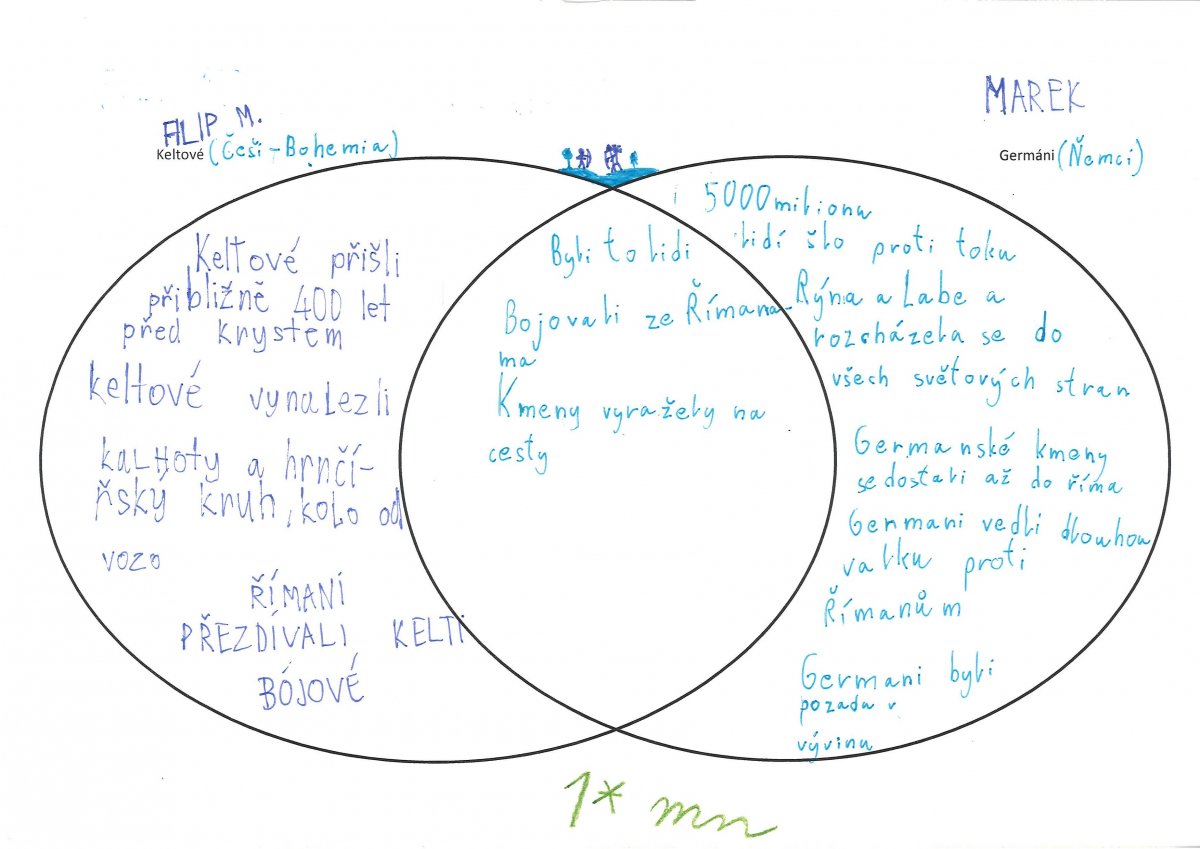 FILIP M.
Keltové (Češi - Bohemia)
Keltové přišli
přibližně 400 let
před krystem
keltové vynalezli
kalHoty a hrnčí-
ňský kruh, kolo od
vozo
ŘÍMANÍ
PŘEZDÍVALI KELTI
BÓJOVÉ
Byli to lidi
Bojovali ze Římana-
ma
Kmeny vyražely na
cesty
MAREK
Germáni (Ňemci)
5000 milionu
lidí šlo proti toku
Rýna a Labe a
rozcházela se do
všech světových stran
Germanské kmeny
se dostali až do říma
Germani vedli dlouhou
valku proti
Římanům
Germani byli
pozadu v
vývinu
1* mn